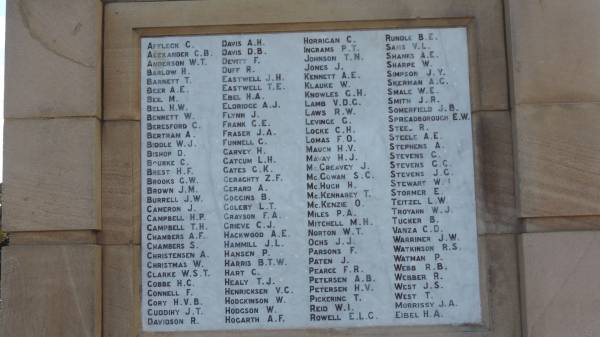 AFFLECK C.
ALEXANDER C.B.
ANDERSON W.T.
BARLOW H.
BARNETT T.
BEER A.E.
BEIL M.
BELL H.W.
BENNETT W.
BERESFORD C.
BERTRAM A.
BIDDLE W.J.
BISHOP D.
BOURKE C.
BREST H.F.
BROOKS G.W.
BROWN J.M.
BURRELL J.W.
CAMERON J.
CAMPBELL H.P.
CAMPBELL T.H.
CHAMBERS A.F.
CHAMBERS S.
CHRISTENSEN A.
CHRISTMAS W.
CLARKE W.S.T.
COBBE H.C.
CONNELL F.
CORY H.V.B.
CUDDIHY J.T.
DAVIDSON R.
DAVIS A.H.
DAVIS D.B.
DEVITT F.
DUFF R.
EASTWELL J.H.
EASTWELL T.E.
EBEL H.A.
ELDRIDGE A.J.
FLYNN J.
FRANK C.E.
FRASER J.A.
FUNNELL G.
GARVEY H.
GATCUM L.H.
GATES C.K.
GERAGHTY Z.F.
GERARD A.
GOGGINS B.
GOLEBY L.T.
GRAYSON F.A.
GRIEVE C.J.
HACKWOOD A.E.
HAMMILL J.L.
HANSEN P.
HARRIS B.T.W.
HART C.
HEALY T.J.
HENRICKSEN V.C.
HODGKINSON W.
HODGSON W.
HOGARTH A.F.
HORRIGAN C.
INGRAMS P.T.
JOHNSON T.N.
JONES J.
KENNETT A.E.
KLAUKE W.
KNOWLES G.H.
LAMB V.D.G.
LAWS R.W.
LEVINGE G.
LOCKE C.H.
LOMAS F.O.
MAUCH H.V.
MAVAY H.J.
MC.CREAVEY J.
MC.GOWAN S.C.
MC.HUGH H.
MC.KENRABEY T.
MC.KENZIE O.
MILES P.A.
MITCHELL M.H.
NORTON W.T.
OCHS J.J.
PARSONS F.
PATEN J.
PEARCE F.R.
PETERSEN A.B.
PETERSEN H.V.
PICKERING T.
REID W.I.
ROWELL E.L.C.
RUNDLE B.E.
SAMS V.L.
SHANKS A.E.
SHARPE W.
SIMPSON J.Y.
SKERMAN A.C.
SMALE W.E.
SMITH J.R.
SOMERFIELD J.B.
SPREADBOROUGH E.W.
STEEL R.
STEELE A.E.
STEPHENS A.
STEVENS C.
STEVENS C.C.
STEVENS J.C.
STEWART W.
STORMER E.
TEITZEL L.W.
TROYAHN W.J.
TUCKER B.
VANZA C.D.
WARRINER J.W.
WATKINSON R.S.
WATMAN P.
WEBB R.B.
WEBBER R.
WEST J.S.
WEST T.
MORRISSY J.A.
EIBEL H.A.